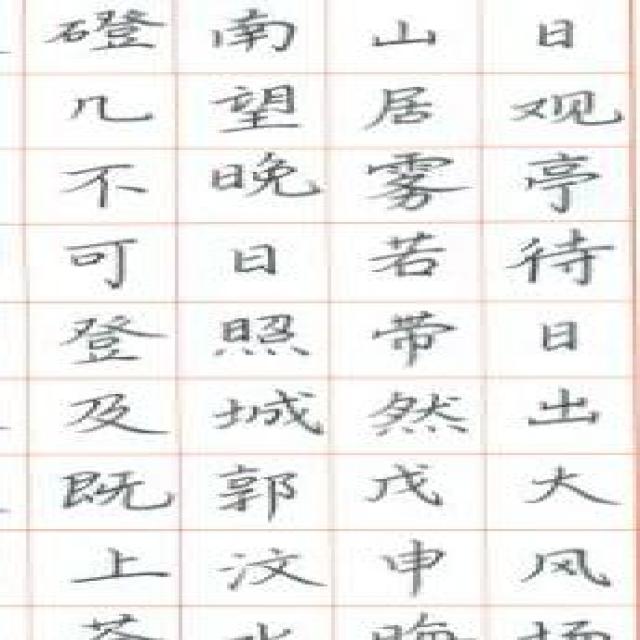 日观亭待日出大风扬
山居雾若带然戊申晦
南望晚日照城郭汶水
磴几不可登及既上苍